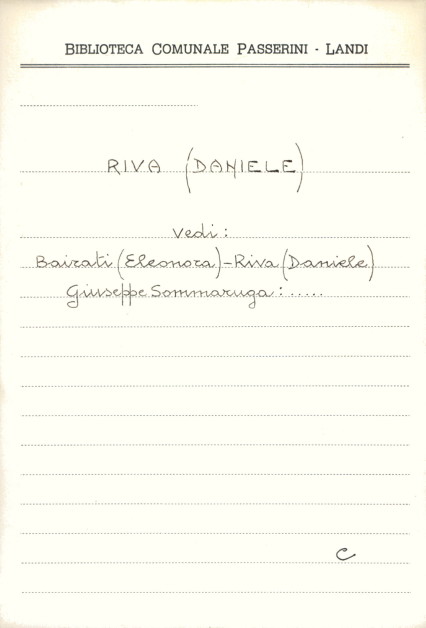 BIBLIOTECA COMUNALE PASSERINI - LANDI
RIVA (DANIELE)
vedi:
Bairati (Eleonora) - Riva (Daniele)
Giuseppe Sommaruga: .....
C